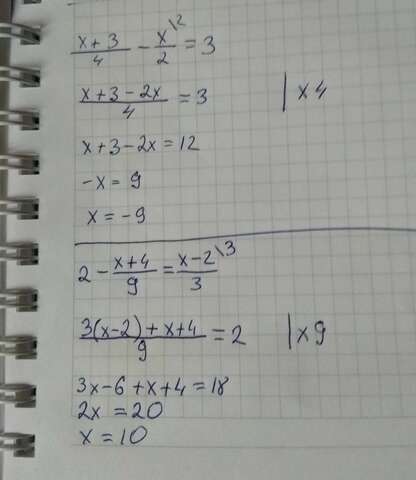 (x+3)/4 - x/2 \2 = 3
(x+3-2x)/4 = 3 | x 4
x+3-2x=12
-x= 9
x=-9
2 - (x+4)/9 = (x-2)/3 \3
(3(x-2)+x+4)/9 = 2 | x 9
3x-6+x+4=18
2x =20
x =10